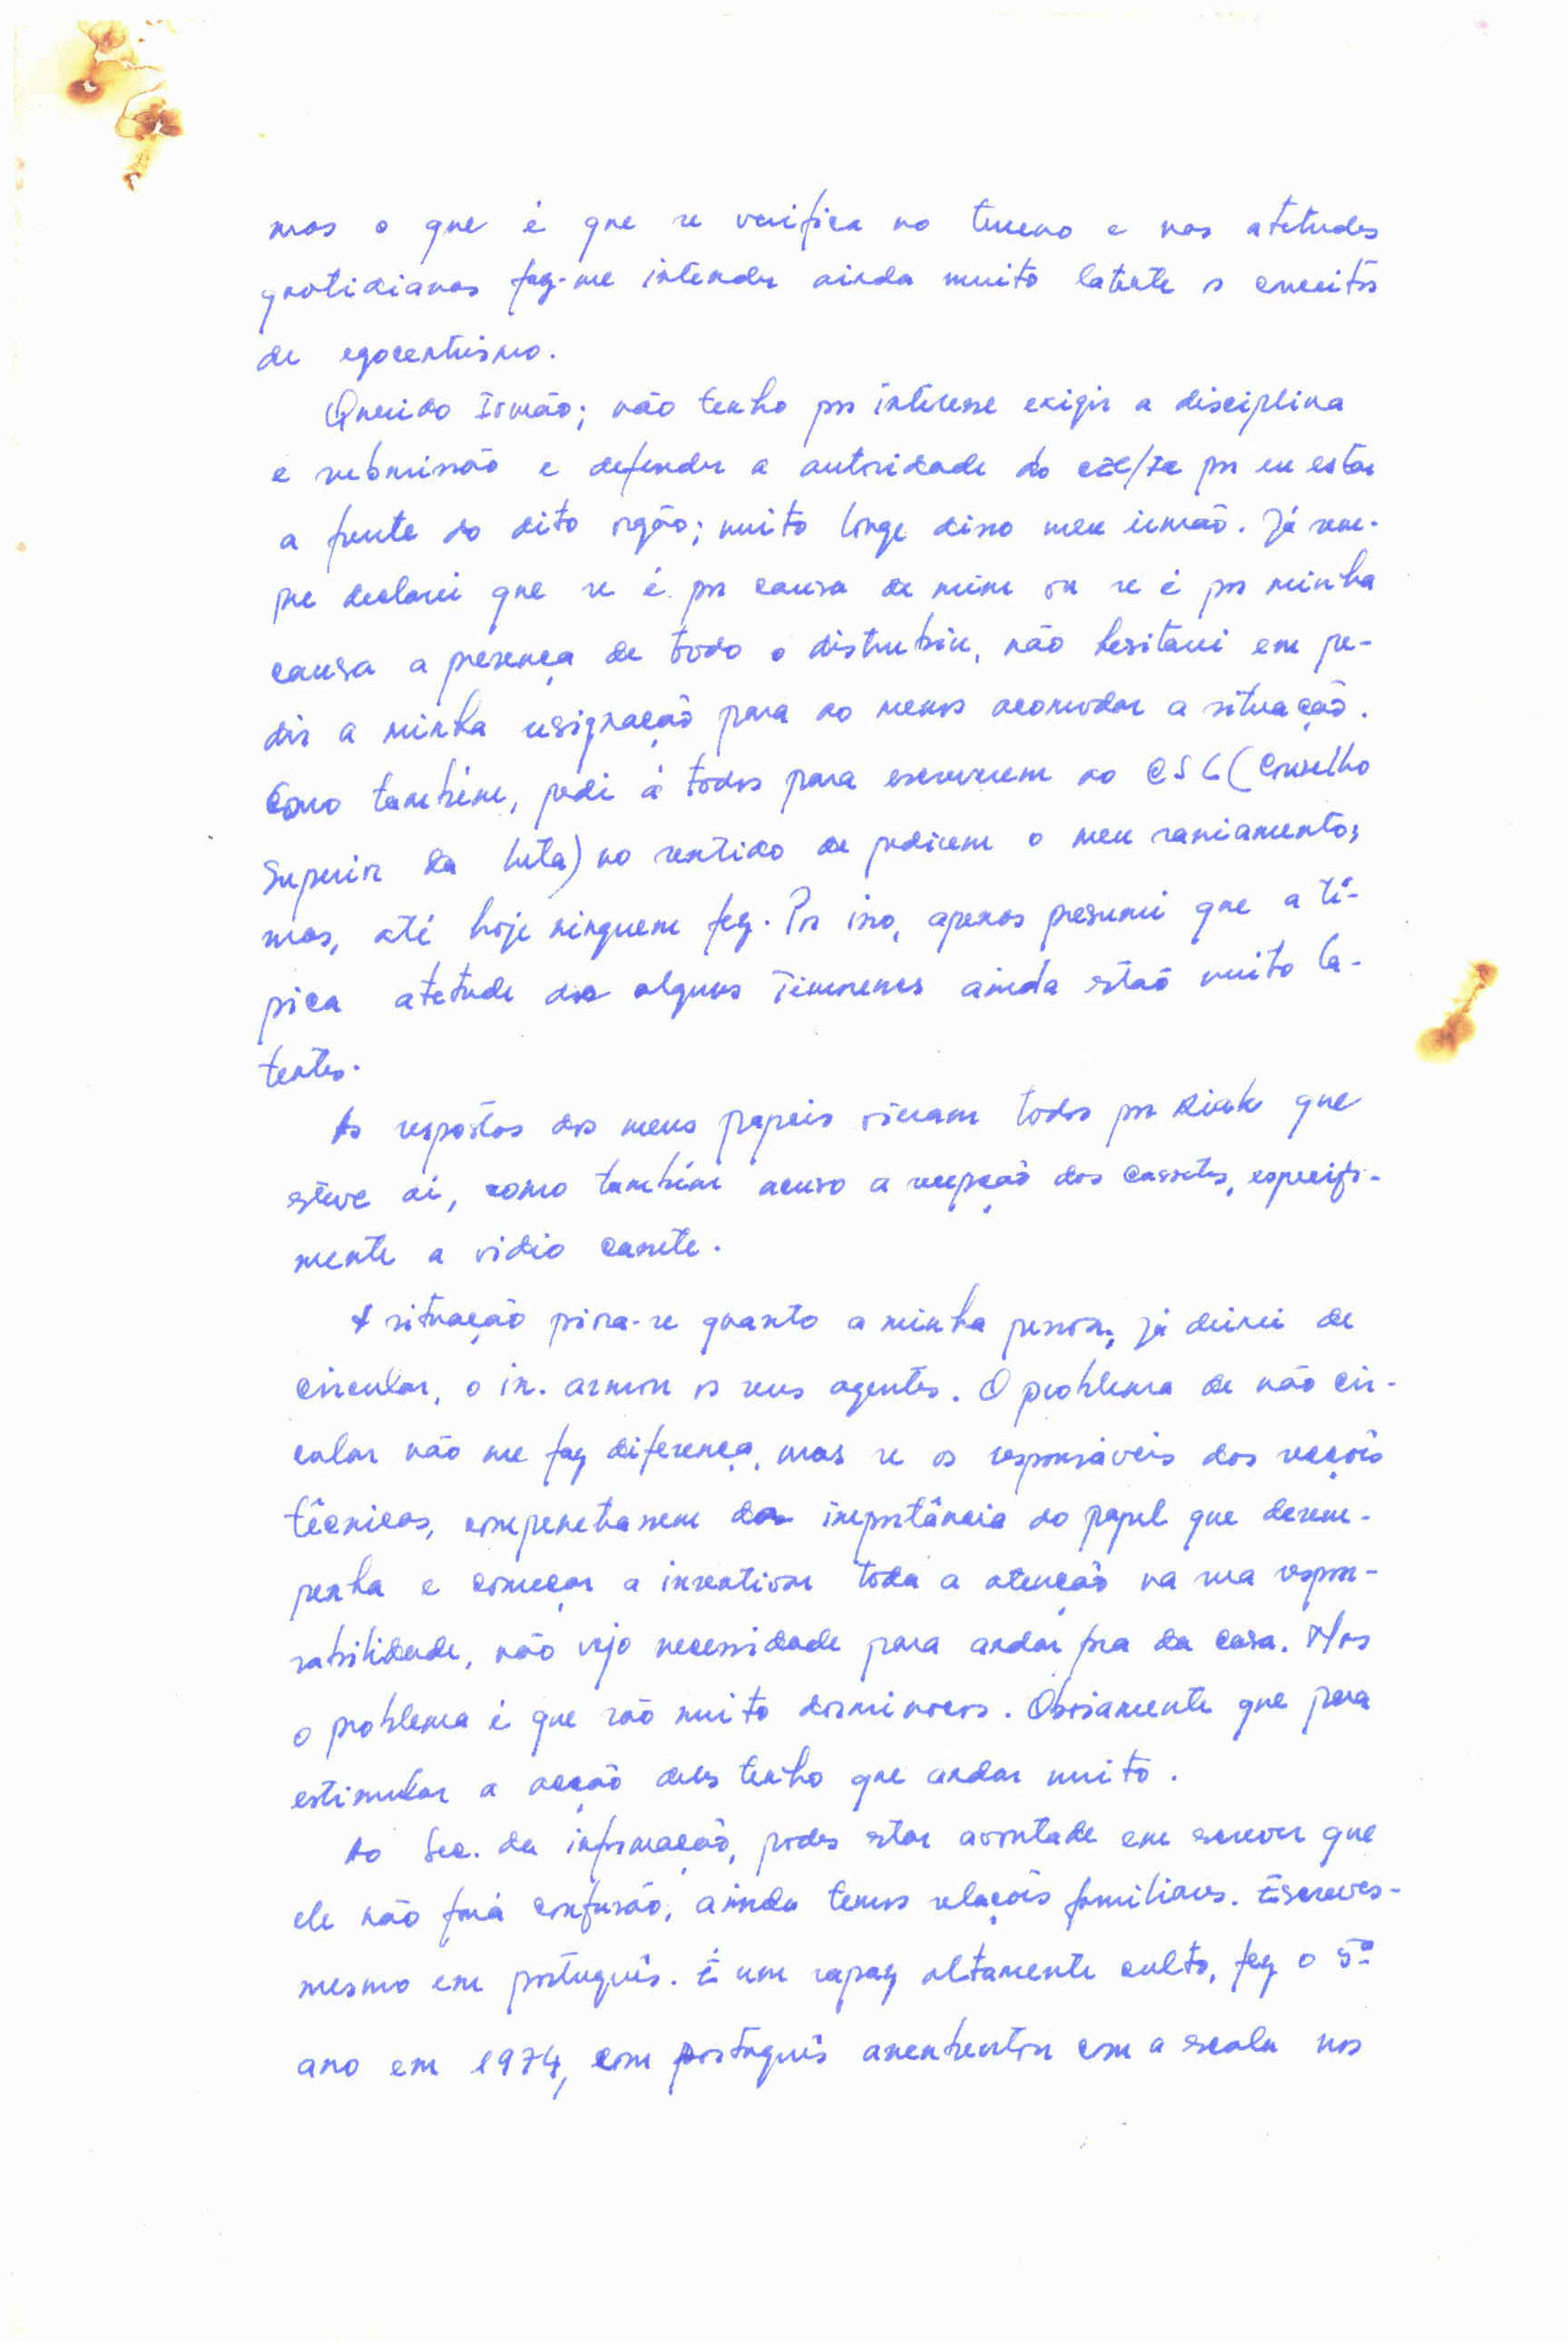 mas o que é que se verifica no terreno e nas atetudes
quotidianas faz-me intender ainda muito latente os conceitos
de egocentrismo.
Querido Irmão; não tenho por interesse exigir a disciplina
e submissão e defender a autoridade do por eu estar
a frente do dito orgão; muito longe disso meu irmão. Já sem-
pre declarei que se é por causa de mim ou se é por minha
causa a presença de todo o distrubiu, não hesitarei em pe-
dir a minha resignação para ao menos acomodar a situação.
Como também, pedi á todos para escreverem ao CSL (Conselho
Superior da Luta) no sentido de pedirem o meu saniamento;
mas, até hoje ninguem fez. Por isso, apenas presumi que a tí-
pica atetude dos alguns Timorenses ainda estaõ muito la-
tentes.
As respostas dos meus papeis vieram todos por que
esteve aí, como também acuso a recepçaõ das cassetes, especifi-
mente a vidio cassete.
A situação piora-se quanto a minha pessoa, já deixei de
circular, o in. armou os seus agentes. O problema de não cir-
cular não me faz diferença, mas se os responsáveis das secçoẽs
têcnicas, compenetrassem da importância do papel que desem-
penha e começar a incentivar toda a atençaõ na sua respon-
sabilidade, não vejo necessidade para andar fora da casa. Mas
o problema é que são muito dorminocos. Obviamente que para
estimular a acçaõ deles tenho que andar muito.
Ao Sec. da informaçaõ, podes estar avontade em escrever que
ele não fará confusão, ainda temos relaçoẽs familiares. Escreves-
mesmo em português. É um rapaz altamente culto, fez o 5º
ano em 1974, com português com a escala nos